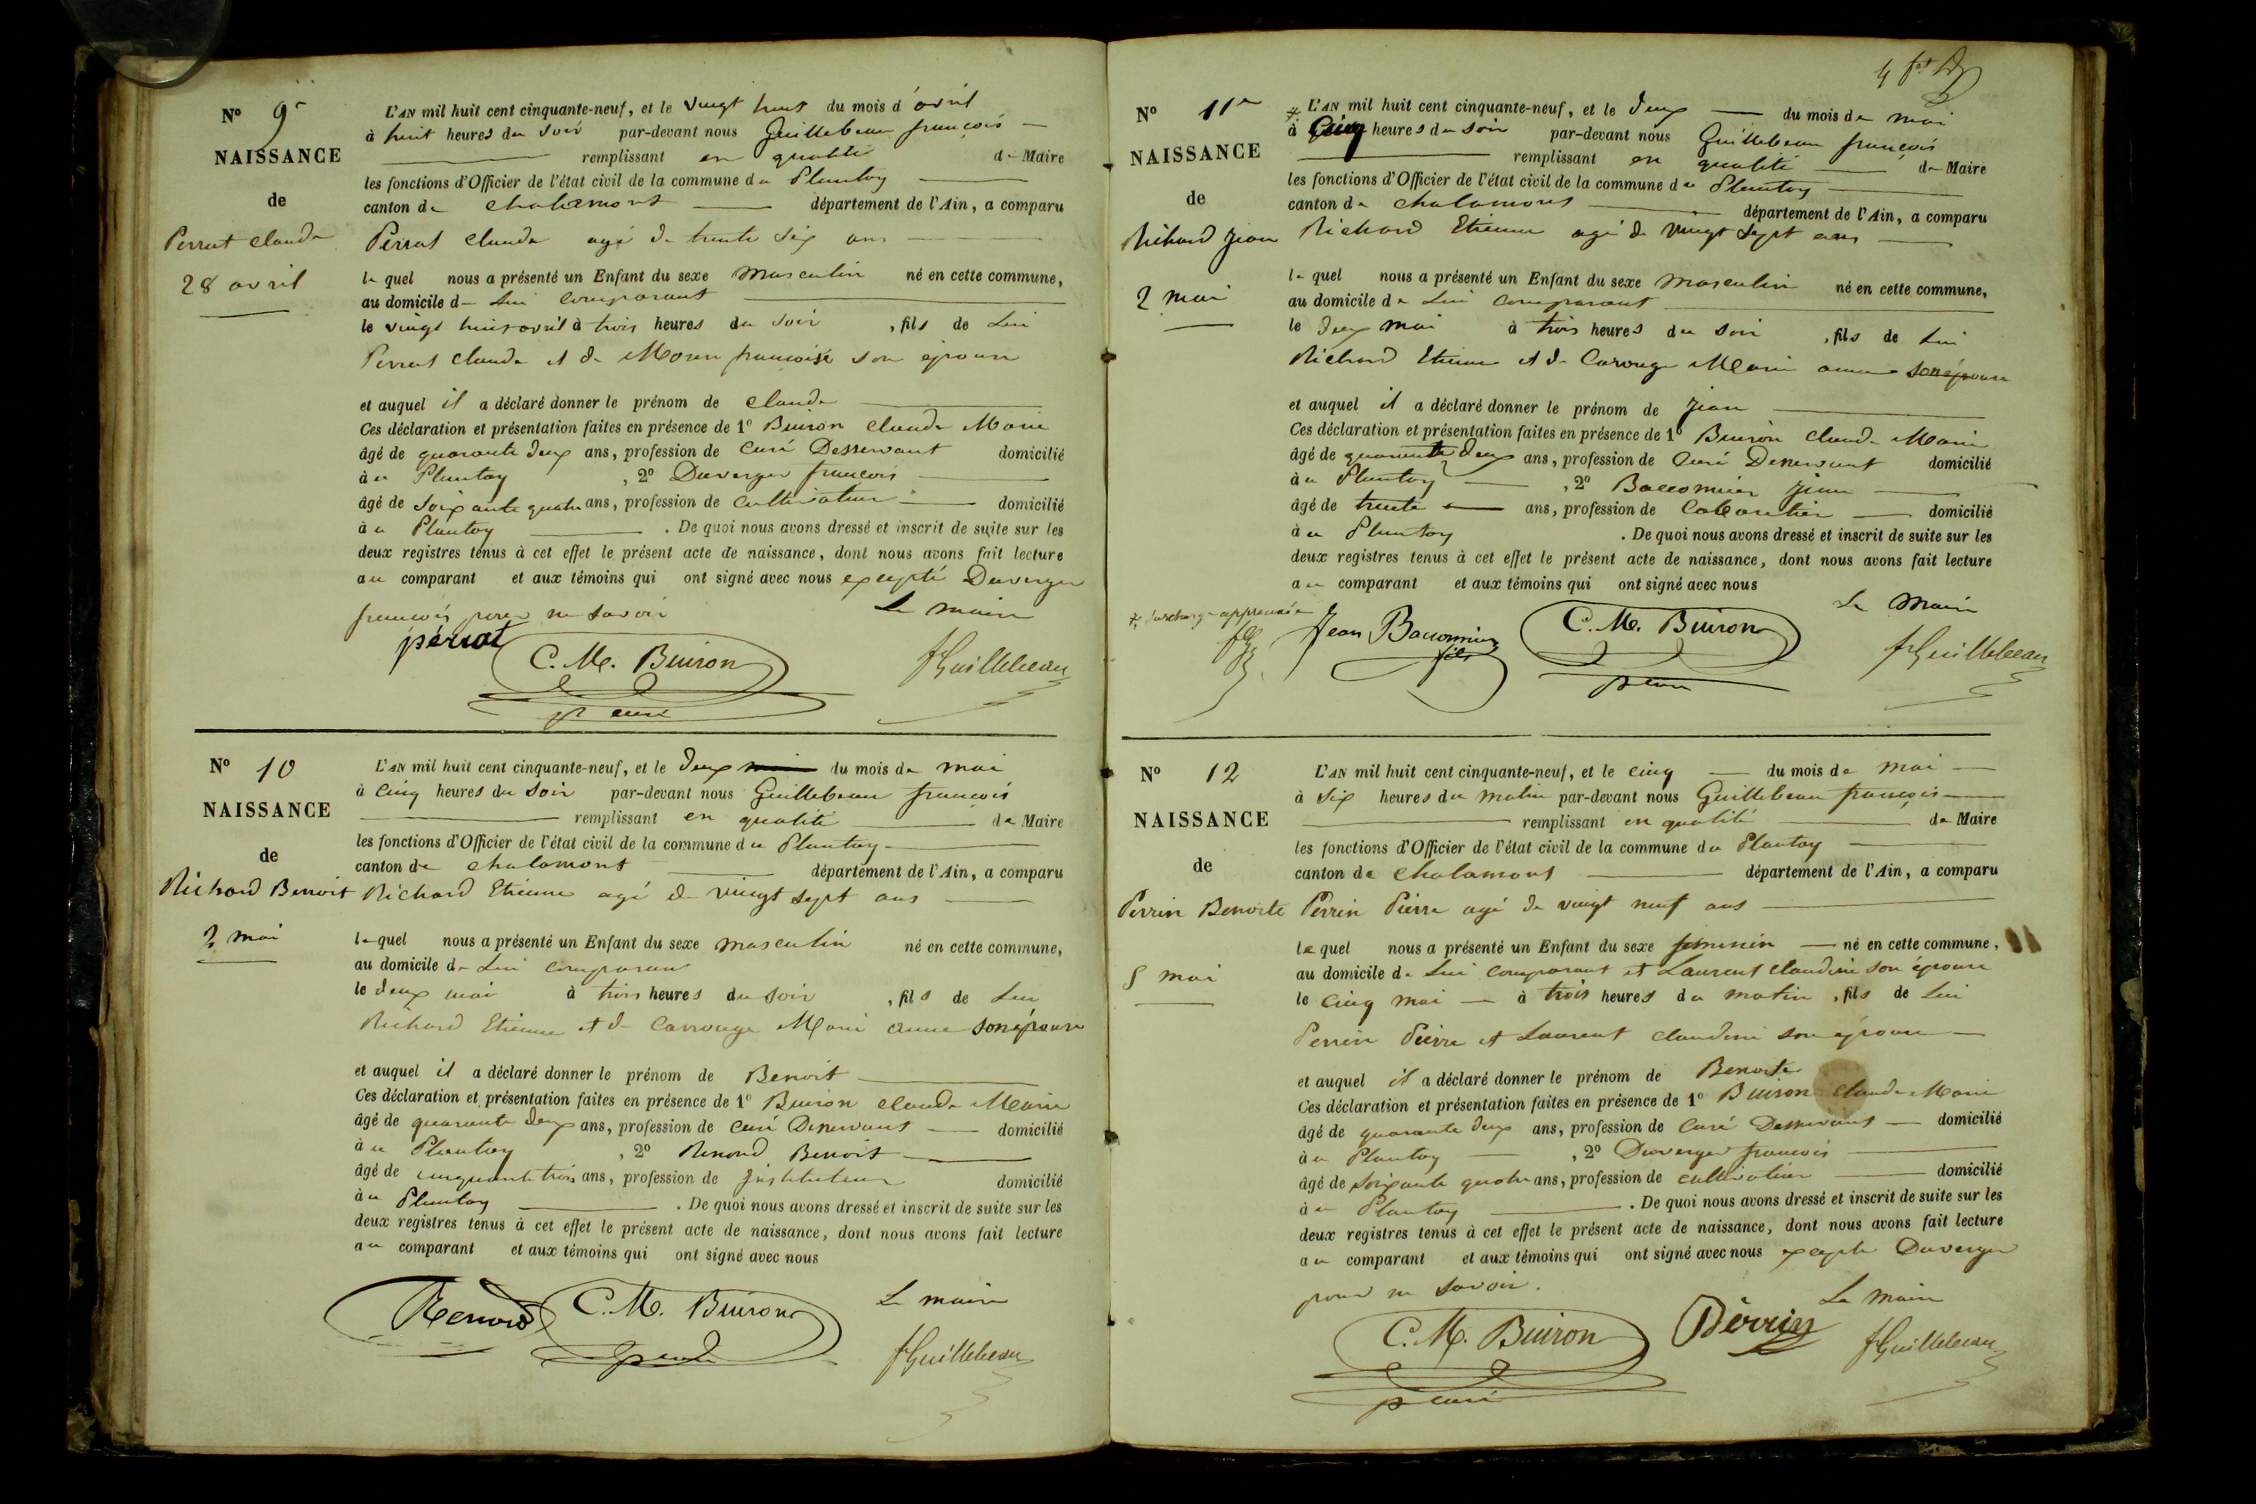 Nº 9e
NAISSANCE
de
Perrat Claude
28 avril
L'AN mil huit cent cinquante-neuf, et le vingt huit du mois d'avril
à huit heures du soir par-devant nous Guillebeau françois
remplissant en qualité de Maire
les fonctions d'Officier de l'état civil de la commune du Plantay
canton de chalamont département de l'Ain, a comparu
Perrat Claude agé de trente six ans
lequel nous a présenté un Enfant du sexe masculin né en cette commune,
au domicile de lui comparant
le vingt huit avril à trois heures du soir, fils de Lui
Perrat Claude et de Morin françoise son épouse
et auquel il a déclaré donner le prénom de Claude
Ces déclaration et présentation faites en présence de 1º Buiron Claude Marie
âgé de quarante deux ans, profession de Curé Desservant domicilié
à u Plantay, 2º Duverger françois
âgé de soixante quatre ans, profession de cultivateur domicilié
à u Plantay. De quoi nous avons dressé et inscrit de suite sur les
deux registres tenus à cet effet le présent acte de naissance, dont nous avons fait lecture
au comparant et aux témoins qui ont signé avec nous excepté Duverger
françois pour ne savoir Le maire
périat C. M. Buiron fGuillebeau
p curé
Nº 10
NAISSANCE
de
Richard Benoit
2 mai
L'AN mil huit cent cinquante-neuf, et le deux mai du mois de mai
à cinq heures du soir par-devant nous Guillebeau françois
remplissant en qualité de Maire
les fonctions d'Officier de l'état civil de la commune du Plantay
canton de chalamont département de l'Ain, a comparu
Richard Etienne agé de vingt sept ans
lequel nous a présenté un Enfant du sexe masculin né en cette commune,
au domicile de Lui comparant
le deux mai à trois heures du soir, fils de Lui
Richard Etienne et de Carrouge Marie anne son épouse
et auquel il a déclaré donner le prénom de Benoit
Ces déclaration et présentation faites en présence de 1º Buiron Claude Marie
âgé de quarante deux ans, profession de curé Desservant domicilié
à u Plantay, 2º Renond Benoit
âgé de cinquante trois ans, profession de Instituteur domicilié
à u Plantay. De quoi nous avons dressé et inscrit de suite sur les
deux registres tenus à cet effet le présent acte de naissance, dont nous avons fait lecture
au comparant et aux témoins qui ont signé avec nous
Le maire
Renond C. M. Buiron fGuillebeau
4 fet
Nº 11e
NAISSANCE
de
Richard Jean
2 mai
L'AN mil huit cent cinquante-neuf, et le deux du mois de mai
à Cinq heures du soir par-devant nous Guillebeau françois
remplissant en qualité de Maire
les fonctions d'Officier de l'état civil de la commune du Plantay
canton de chalamont département de l'Ain, a comparu
Richard Etienne agé de vingt sept ans
lequel nous a présenté un Enfant du sexe masculin né en cette commune,
au domicile de Lui comparant
le deux mai à trois heures du soir, fils de Lui
Richard Etienne et de Carouge Marie anne son épouse
et auquel il a déclaré donner le prénom de Jean
Ces déclaration et présentation faites en présence de 1º Buiron Claude Marie
âgé de quarante deux ans, profession de Curé Desservant domicilié
à u Plantay, 2º Baccomier Jean
âgé de trente ans, profession de Cabaretier domicilié
à u Plantay. De quoi nous avons dressé et inscrit de suite sur les
deux registres tenus à cet effet le présent acte de naissance, dont nous avons fait lecture
au comparant et aux témoins qui ont signé avec nous
surcharge approuvée Le Maire
Jean Baccomier fils C. M. Buiron fGuillebeau
Nº 12
NAISSANCE
de
Perrin Benoite
5 mai
L'AN mil huit cent cinquante-neuf, et le cinq du mois de mai
à six heures du matin par-devant nous Guillebeau françois
remplissant en qualité de Maire
les fonctions d'Officier de l'état civil de la commune du Plantay
canton de Chalamont département de l'Ain, a comparu
Perrin Pierre agé de vingt neuf ans
lequel nous a présenté un Enfant du sexe feminin né en cette commune,
au domicile de Lui comparant et Laurent Claudine son épouse
le cinq mai à trois heures du matin, fils de Lui
Perrin Pierre et Laurent Claudine son épouse
et auquel il a déclaré donner le prénom de Benoite
Ces déclaration et présentation faites en présence de 1º Buiron Claude Marie
âgé de quarante deux ans, profession de Curé Desservant domicilié
à u Plantay, 2º Duverger françois
âgé de soixante quatre ans, profession de cultivateur domicilié
à u Plantay. De quoi nous avons dressé et inscrit de suite sur les
deux registres tenus à cet effet le présent acte de naissance, dont nous avons fait lecture
au comparant et aux témoins qui ont signé avec nous excepté Duverger
pour ne savoir. Le Maire
C. M. Buiron Pérrin fGuillebeau
p curé